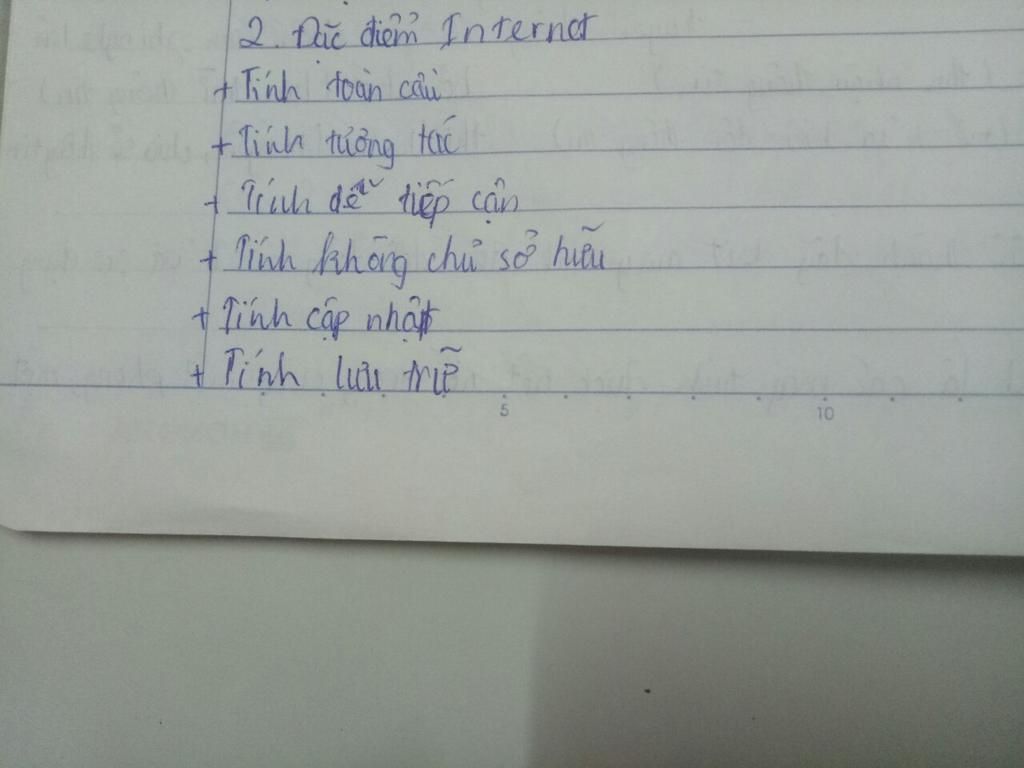 2. Đặc điểm Internet
+ Tính toàn cầu
+ Tính tương tác
+ Tính dễ tiếp cận
+ Tính không chủ sở hữu
+ Tính cập nhật
+ Tính lưu trữ
5 10